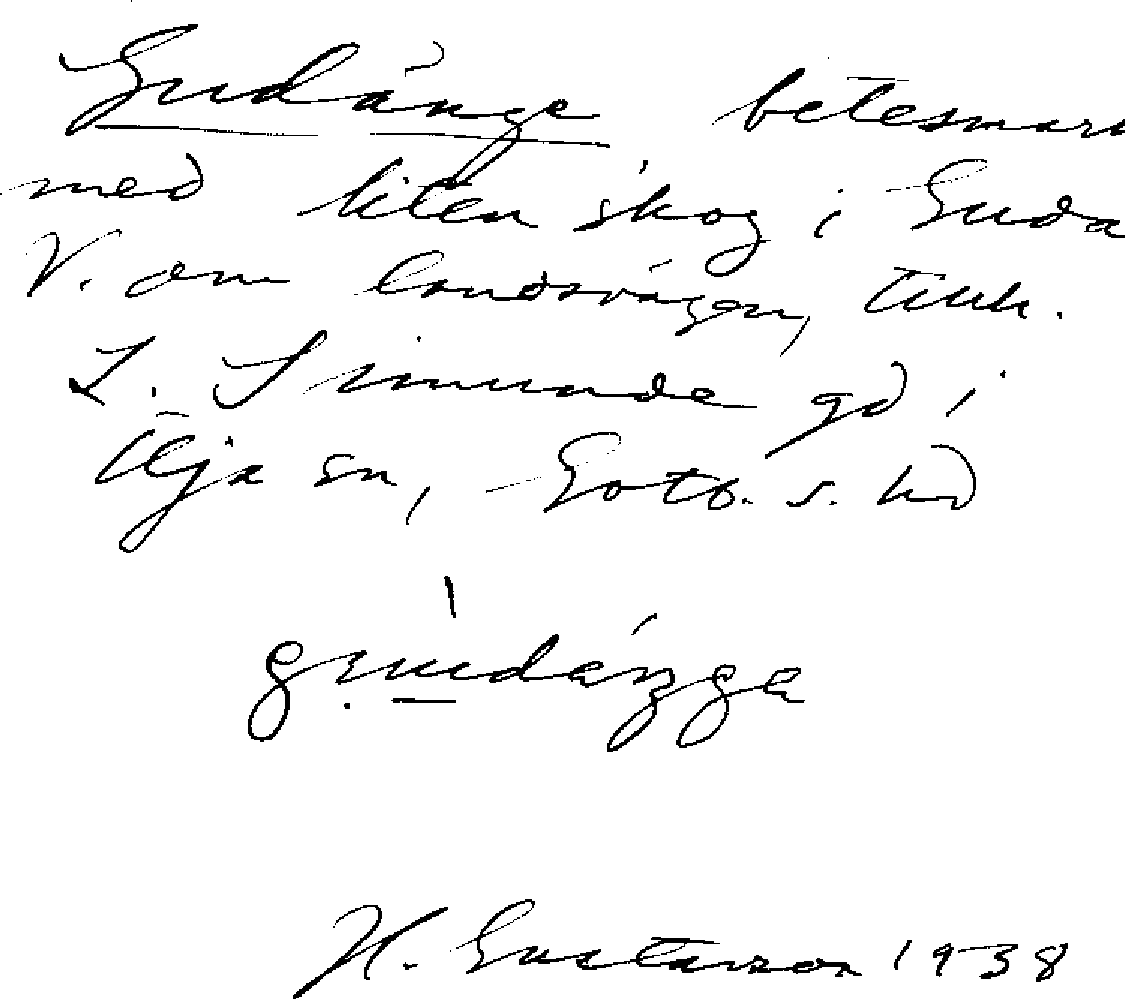 Gudänge betesmark
med liten skog i Guda
V. om landsvägen, tillh.
L. Simunde gd i
Alja sn, Gotl. s. hd
gúdänga
H. Gustavson 1938